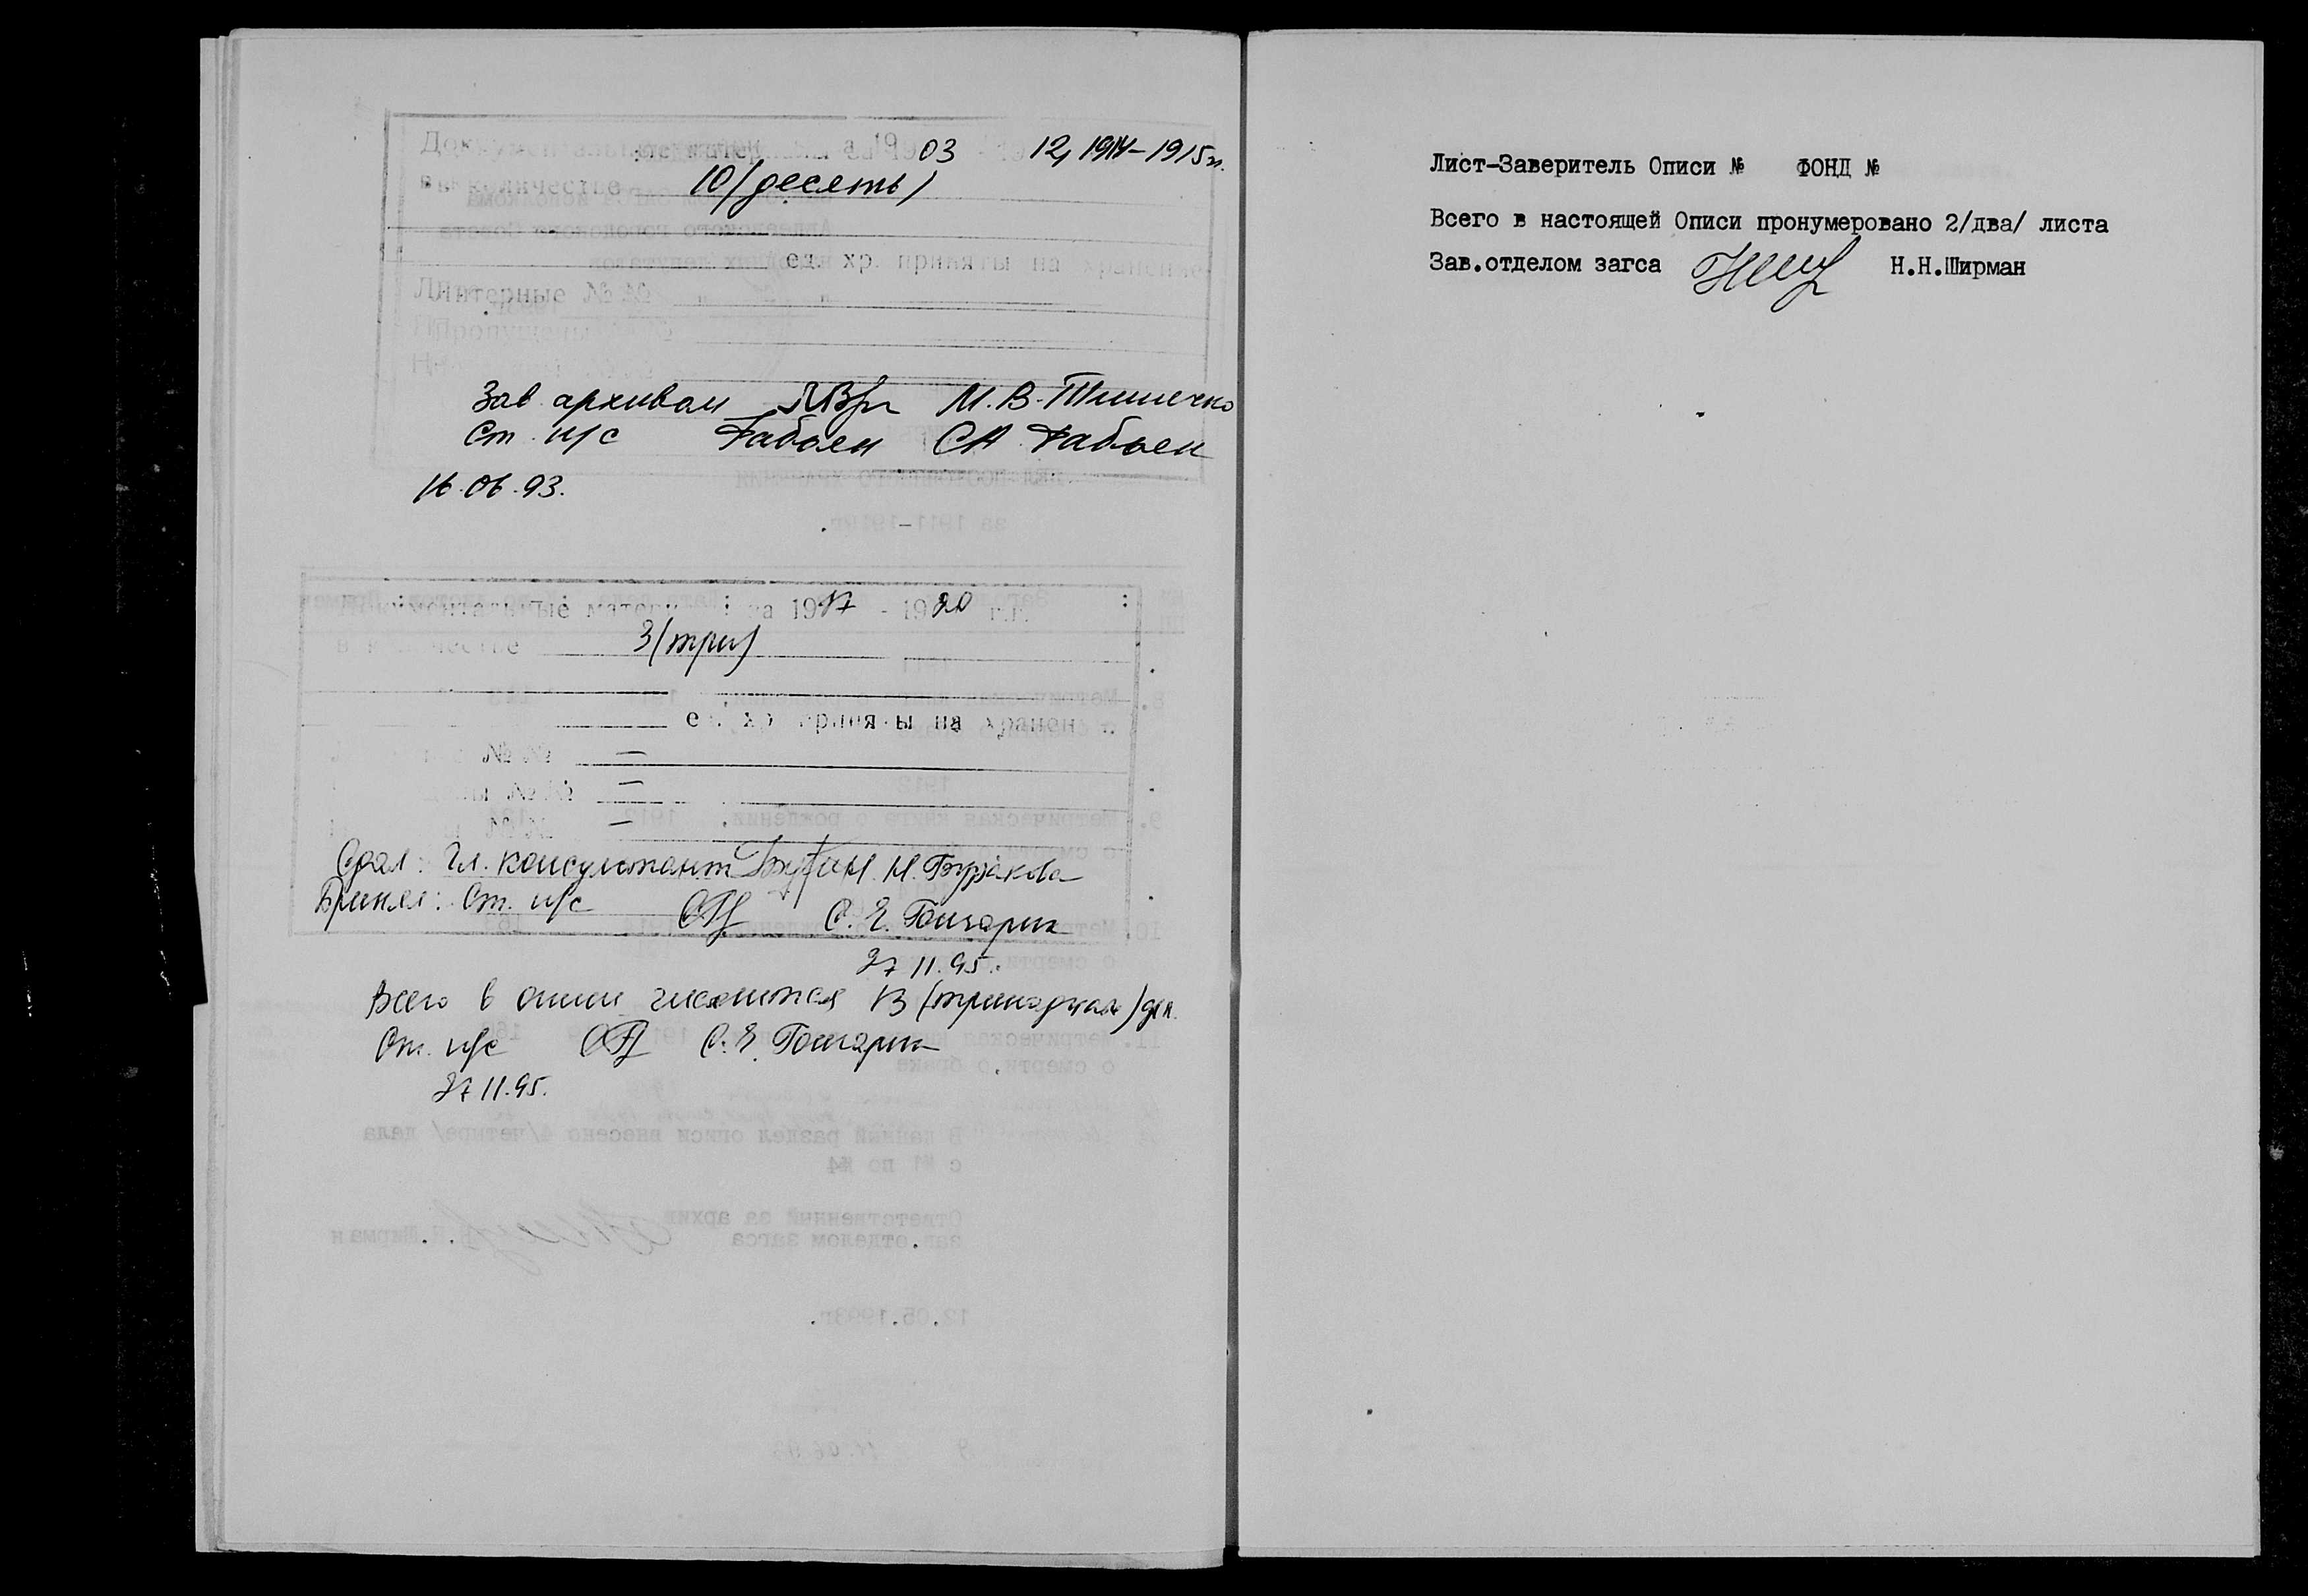 Документальные матер за 1903 12, 1914-1915гг.
в количестве 10 (десять)
ед. хр. приняты на хранение
Литерные №№
Пропущены
Зав архивом М. В. Тимшечко
Ст. н/с Рабоен С А Рабоен
16.06.93.
Документальные матери за 1917 - 1920 г.г.
в количестве 3 (три)
ед. хр. приняты на хранен
№№ —
№№ —
№№ —
Сдал: Гл. консультант Н. Н. Бурякова
Принял: Ст. н/с С. Е. Гончарик
27 11.95.
Всего в описи числится 13 (тринадцать) дел.
Ст. н/с С. Е. Гончарик
27 11.95.
Лист-Заверитель Описи № ФОНД №
Всего в настоящей Описи пронумеровано 2/два/ листа
Зав.отделом загса Н.Н.Ширман